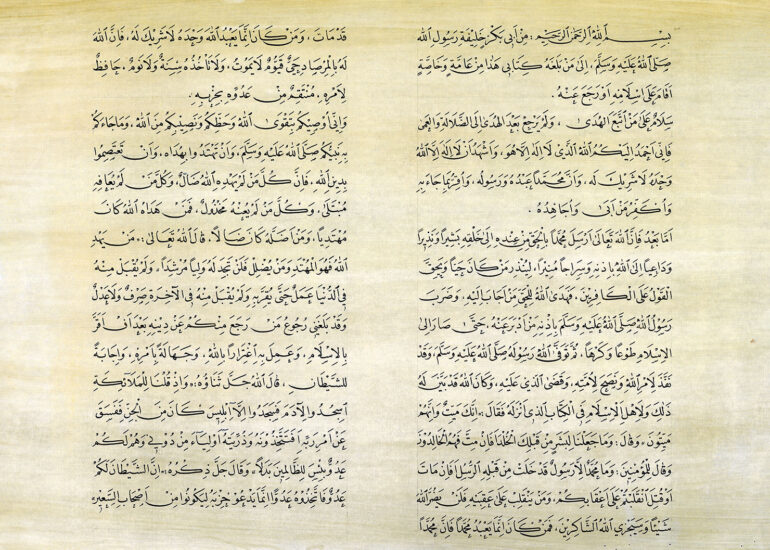 بِسْمِ اللهِ الرَّحْمٰنِ الرَّحِيْمِ: مِنْ أَبِي بَكْرٍ خَلِيفَةِ رَسُولِ اللهِ
صَلَّى اللهُ عَلَيْهِ وَسَلَّمَ، إِلَى مَنْ بَلَغَهُ كِتَابِي هٰذَا مِنْ عَامَّةٍ وَخَاصَّةٍ
أَقَامَ عَلَى إِسْلَامِهِ أَوْ رَجَعَ عَنْهُ.
سَلَامٌ عَلَى مَنِ اتَّبَعَ الْهُدَى، وَلَمْ يَرْجِعْ بَعْدَ الْهُدَى إِلَى الضَّلَالَةِ وَالْعَمَى
فَإِنِّي أَحْمَدُ إِلَيْكُمُ اللهَ الَّذِي لَا إِلٰهَ إِلَّا هُوَ، وَأَشْهَدُ أَنْ لَا إِلٰهَ إِلَّا اللهُ
وَحْدَهُ لَا شَرِيْكَ لَهُ، وَأَنَّ مُحَمَّدًا عَبْدُهُ وَرَسُولُهُ، وَأُقِرُّ بِمَا جَاءَ بِهِ
وَأُكَفِّرُ مَنْ أَبَى وَأُجَاهِدُهُ.
أَمَّا بَعْدُ فَإِنَّ اللهَ تَعَالَى أَرْسَلَ مُحَمَّدًا بِالْحَقِّ مِنْ عِنْدِهِ إِلَى خَلْقِهِ بَشِيْرًا وَنَذِيْرًا
وَدَاعِيًا إِلَى اللهِ بِإِذْنِهِ وَسِرَاجًا مُنِيْرًا، لِيُنْذِرَ مَنْ كَانَ حَيًّا وَيَحِقَّ
الْقَوْلُ عَلَى الْكَافِرِيْنَ، فَهَدَى اللهُ لِلْحَقِّ مَنْ أَجَابَ إِلَيْهِ، وَضَرَبَ
رَسُولُ اللهِ صَلَّى اللهُ عَلَيْهِ وَسَلَّمَ بِإِذْنِهِ مَنْ أَدْبَرَ عَنْهُ، حَتَّى صَارَ إِلَى
الْإِسْلَامِ طَوْعًا وَكَرْهًا، ثُمَّ تَوَفَّى اللهُ رَسُولَهُ صَلَّى اللهُ عَلَيْهِ وَسَلَّمَ، وَقَدْ
نَفَّذَ لِأَمْرِ اللهِ وَنَصَحَ لِأُمَّتِهِ، وَقَضَى الَّذِي عَلَيْهِ، وَكَانَ اللهُ قَدْ بَيَّنَ لَهُ
ذٰلِكَ وَلِأَهْلِ الْإِسْلَامِ فِي الْكِتَابِ الَّذِي أَنْزَلَهُ فَقَالَ: إِنَّكَ مَيِّتٌ وَإِنَّهُمْ
مَيِّتُونَ، وَقَالَ: وَمَا جَعَلْنَا لِبَشَرٍ مِنْ قَبْلِكَ الْخُلْدَ أَفَإِنْ مِتَّ فَهُمُ الْخَالِدُونَ
وَقَالَ لِلْمُؤْمِنِيْنَ: وَمَا مُحَمَّدٌ إِلَّا رَسُولٌ قَدْ خَلَتْ مِنْ قَبْلِهِ الرُّسُلُ أَفَإِنْ مَاتَ
أَوْ قُتِلَ انْقَلَبْتُمْ عَلَى أَعْقَابِكُمْ، وَمَنْ يَنْقَلِبْ عَلَى عَقِبَيْهِ فَلَنْ يَضُرَّ اللهَ
شَيْئًا وَسَيَجْزِي اللهُ الشَّاكِرِيْنَ، فَمَنْ كَانَ إِنَّمَا يَعْبُدُ مُحَمَّدًا فَإِنَّ مُحَمَّدًا
قَدْ مَاتَ، وَمَنْ كَانَ إِنَّمَا يَعْبُدُ اللهَ وَحْدَهُ لَا شَرِيْكَ لَهُ، فَإِنَّ اللهَ
لَهُ بِالْمِرْصَادِ حَيٌّ قَيُّومٌ لَا يَمُوتُ، وَلَا تَأْخُذُهُ سِنَةٌ وَلَا نَوْمٌ، حَافِظٌ
لِأَمْرِهِ، مُنْتَقِمٌ مِنْ عَدُوِّهِ بِحِزْبِهِ.
وَإِنِّي أُوصِيْكُمْ بِتَقْوَى اللهِ وَحَظِّكُمْ وَنَصِيْبِكُمْ مِنَ اللهِ، وَمَا جَاءَكُمْ
بِهِ نَبِيُّكُمْ صَلَّى اللهُ عَلَيْهِ وَسَلَّمَ، وَأَنْ تَهْتَدُوا بِهُدَاهُ، وَأَنْ تَعْتَصِمُوا
بِدِيْنِ اللهِ، فَإِنَّ كُلَّ مَنْ لَمْ يَهْدِهِ اللهُ ضَالٌّ، وَكُلَّ مَنْ لَمْ يُعَافِهِ
مُبْتَلًى، وَكُلَّ مَنْ لَمْ يُعِنْهُ مَخْذُولٌ، فَمَنْ هَدَاهُ اللهُ كَانَ
مُهْتَدِيًا، وَمَنْ أَضَلَّهُ كَانَ ضَالًّا، قَالَ اللهُ تَعَالَى: مَنْ يَهْدِ
اللهُ فَهُوَ الْمُهْتَدِ وَمَنْ يُضْلِلْ فَلَنْ تَجِدَ لَهُ وَلِيًّا مُرْشِدًا، وَلَمْ يُقْبَلْ مِنْهُ
فِي الدُّنْيَا عَمَلٌ حَتَّى يُقِرَّ بِهِ وَلَمْ يُقْبَلْ مِنْهُ فِي الْآخِرَةِ صَرْفٌ وَلَا عَدْلٌ
وَقَدْ بَلَغَنِي رُجُوعُ مَنْ رَجَعَ مِنْكُمْ عَنْ دِيْنِهِ بَعْدَ أَنْ أَقَرَّ
بِالْإِسْلَامِ، وَعَمِلَ بِهِ اغْتِرَارًا بِاللهِ، وَجَهَالَةً بِأَمْرِهِ، وَإِجَابَةً
لِلشَّيْطَانِ، قَالَ اللهُ جَلَّ ثَنَاؤُهُ: وَإِذْ قُلْنَا لِلْمَلَائِكَةِ
اسْجُدُوا لِآدَمَ فَسَجَدُوا إِلَّا إِبْلِيْسَ كَانَ مِنَ الْجِنِّ فَفَسَقَ
عَنْ أَمْرِ رَبِّهِ أَفَتَتَّخِذُونَهُ وَذُرِّيَّتَهُ أَوْلِيَاءَ مِنْ دُونِي وَهُمْ لَكُمْ
عَدُوٌّ بِئْسَ لِلظَّالِمِيْنَ بَدَلًا، وَقَالَ جَلَّ ذِكْرُهُ: إِنَّ الشَّيْطَانَ لَكُمْ
عَدُوٌّ فَاتَّخِذُوهُ عَدُوًّا إِنَّمَا يَدْعُو حِزْبَهُ لِيَكُونُوا مِنْ أَصْحَابِ السَّعِيْرِ